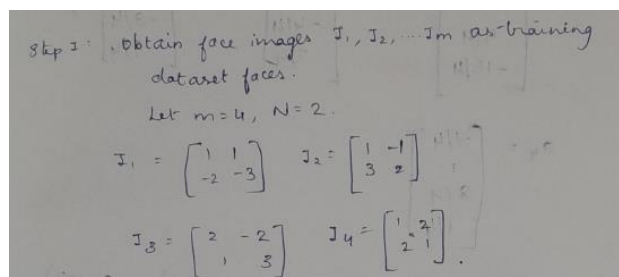 Step I: Obtain face images I₁, I₂, ... Im as training
dataset faces.
Let m=4, N=2.
I₁ = [1 1; -2 -3] I₂ = [1 -1; 3 2]
I₃ = [2 -2; 1 3] I₄ = [1 2; 2 1].